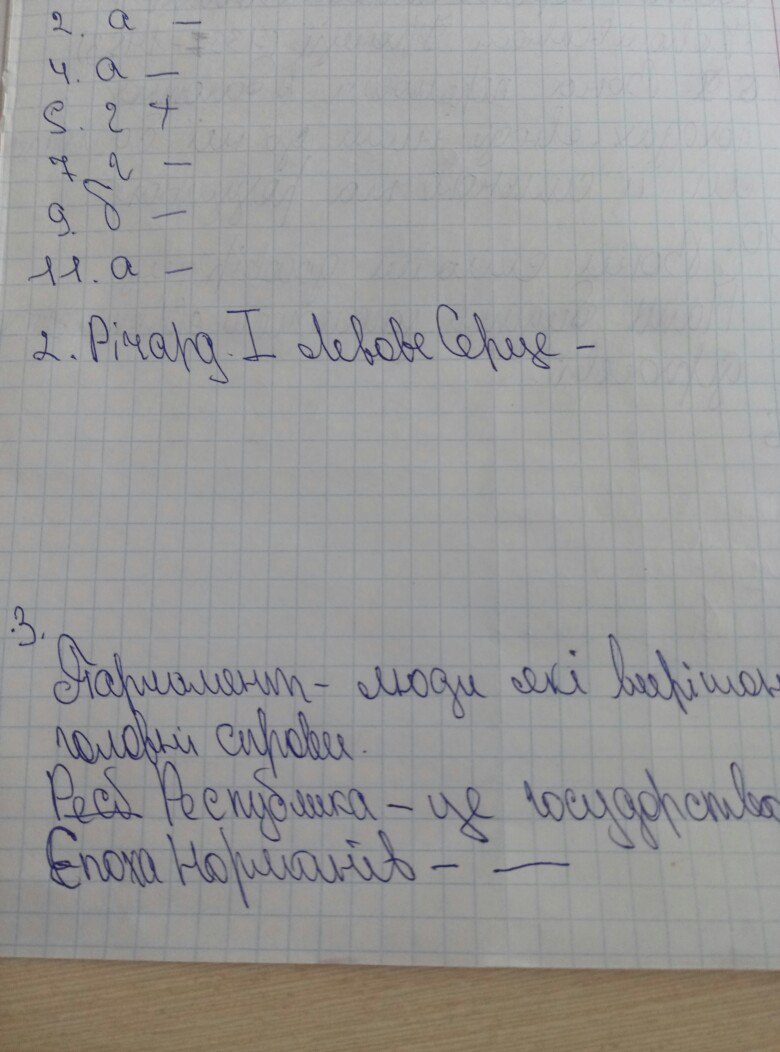 2. а —
4. а —
5. г +
7 г —
9. б —
11. а —
2. Річард. І Левове Серце –
3.
Парламент – люди які вирішон
головні справи.
Респ Республика – це государства
Епоха Норманів – —